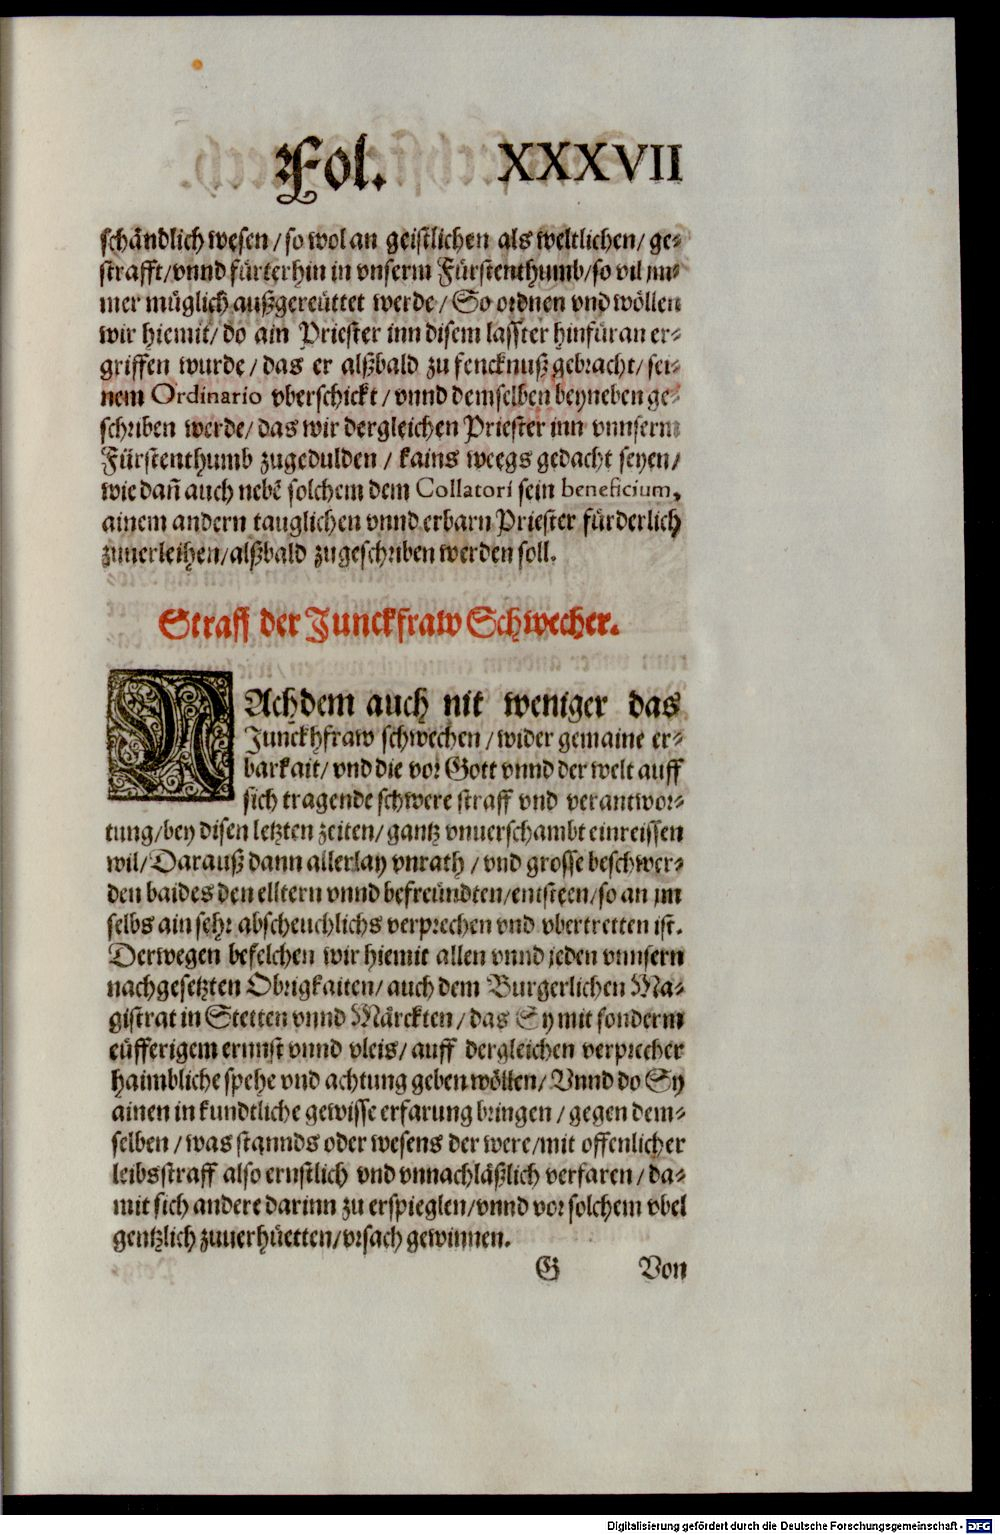 Fol. XXXVII
schändlich wesen / so wol an geistlichen als weltlichen / ge-
strafft / vnnd fürterhin in vnserm Fürstenthumb / so vil im-
mer müglich außgereüttet werde / So ordnen vnd wöllen
wir hiemit / do ain Priester inn disem lasster hinfüran er-
griffen wurde / das er alßbald zu fencknuß gebracht / sei-
nem Ordinario vberschickt / vnnd demselben beyneben ge-
schriben werde / das wir dergleichen Priester inn vnnserm
Fürstenthumb zugedulden / kains weegs gedacht seyen /
wie dañ auch nebẽ solchem dem Collatori sein beneficium,
ainem andern tauglichen vnnd erbarn Priester fürderlich
zuuerleihen / alßbald zugeschriben werden soll.
Straff der Junckfraw Schwecher.
NAchdem auch nit weniger das
Junckhfraw schwechen / wider gemaine er-
barkait / vnd die vor Gott vnnd der welt auff
sich tragende schwere straff vnd verantwor-
tung / bey disen letzten zeiten / gantz vnuerschambt einreissen
wil / Darauß dann allerlay vnrath / vnd grosse beschwer-
den baides den elltern vnnd befreündten / entsteen / so an im
selbs ain sehr abscheuchlichs verprechen vnd vbertretten ist.
Derwegen befelchen wir hiemit allen vnnd jeden vnnsern
nachgesetzten Obrigkaiten / auch dem Burgerlichen Ma-
gistrat in Stetten vnnd Märckten / das Sy mit sonderm
eüfferigem ernnst vnnd vleis / auff dergleichen verprecher
haimbliche spehe vnd achtung geben wöllen / Vnnd do Sy
ainen in kundtliche gewisse erfarung bringen / gegen dem-
selben / was stannds oder wesens der were / mit offenlicher
leibsstraff also ernstlich vnd vnnachläßlich verfaren / da-
mit sich andere darinn zu erspieglen / vnnd vor solchem vbel
gentzlich zuuerhüetten / vrsach gewinnen.
G Von
Digitalisierung gefördert durch die Deutsche Forschungsgemeinschaft - DFG